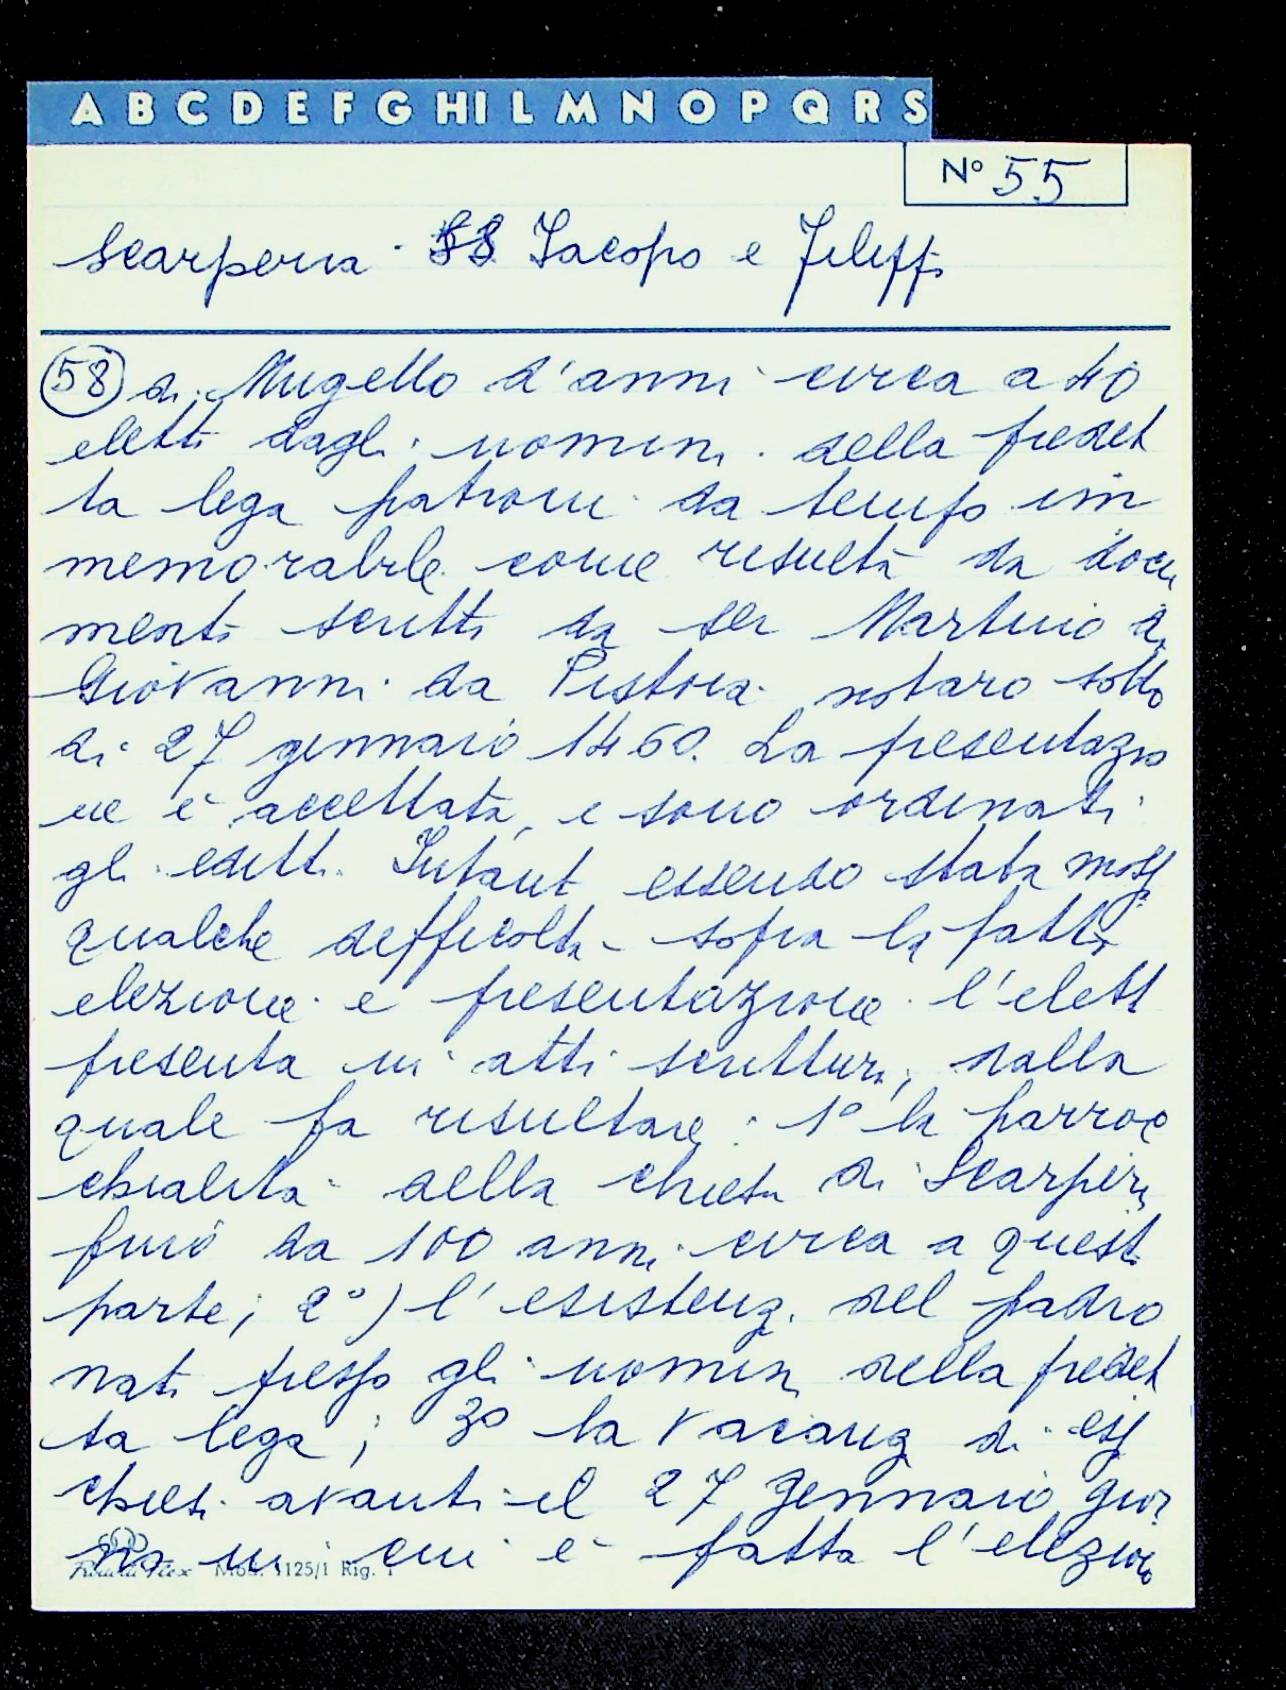 A B C D E F G HI L M N O P Q R S
Nº 55
Scarperia SS Jacopo e Filippo
58 di Mugello d'anni circa a 40
eletto dagli uomini della predet
ta lega patroni da tempo im
memorabile come resulta da docu
menti scritti da ser Martino di
Giovanni da Pistoia notaro sotto
di 27 gennaio 1460. La presentazio
ne è accettata, e sono ordinati
gli editti. Intanto essendo stata mossa
qualche defficoltà sopra la fatta
elezione e presentazione l'eletto
presenta in atti scrittura, dalla
quale fa risultare: 1º la parroc
chialità della chiesa di Scarperia
fino da 100 anni circa a questa
parte; 2º) l'esistenza del padro
nato presso gli uomini della predet
ta lega; 3º la vacanza di essa
chiesa avanti il 27 gennaio gior
no in cui è fatta l'elezione
Mod. 125/1 Rig. 1